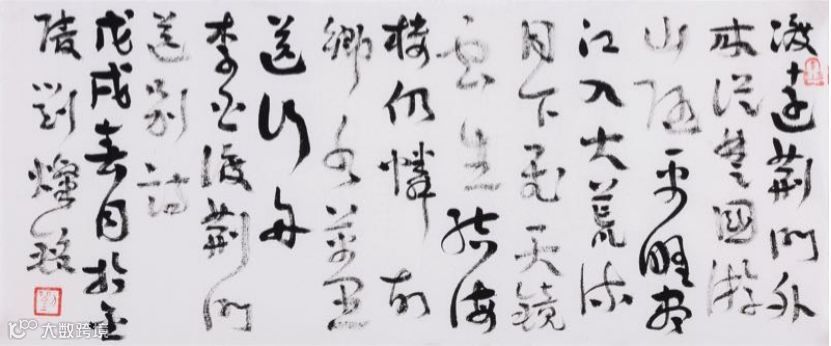 渡十远荆门外
来従楚國游
山随平野尽
江入大荒流
月下飞天镜
云生结海
楼仍怜故
乡水万里
送行舟
李白渡荆门
送别诗
戊戌春月於金
陵刘灿铭
大数跨境